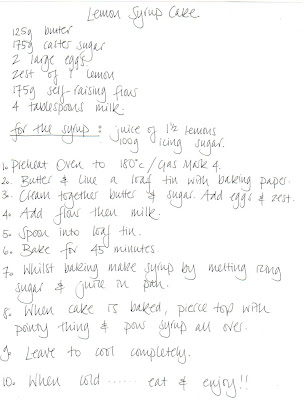 Lemon Syrup Cake
125g butter
175g caster sugar
2 large eggs.
zest of 1 lemon
175g self-raising flour
4 tablespoons milk.
for the syrup: juice of 1½ lemons
100g icing sugar.
1. Preheat Oven to 180°c / Gas Mark 4.
2. Butter & Line a loaf tin with baking paper.
3. Cream together butter & sugar. Add eggs & zest.
4. Add flour then milk.
5. Spoon into loaf tin.
6. Bake for 45 minutes.
7. Whilst baking make syrup by melting icing
sugar & juice in pan.
8. When cake is baked, pierce top with
pointy thing & pour syrup all over.
9. Leave to cool completely.
10. When cold ...... eat & enjoy!!